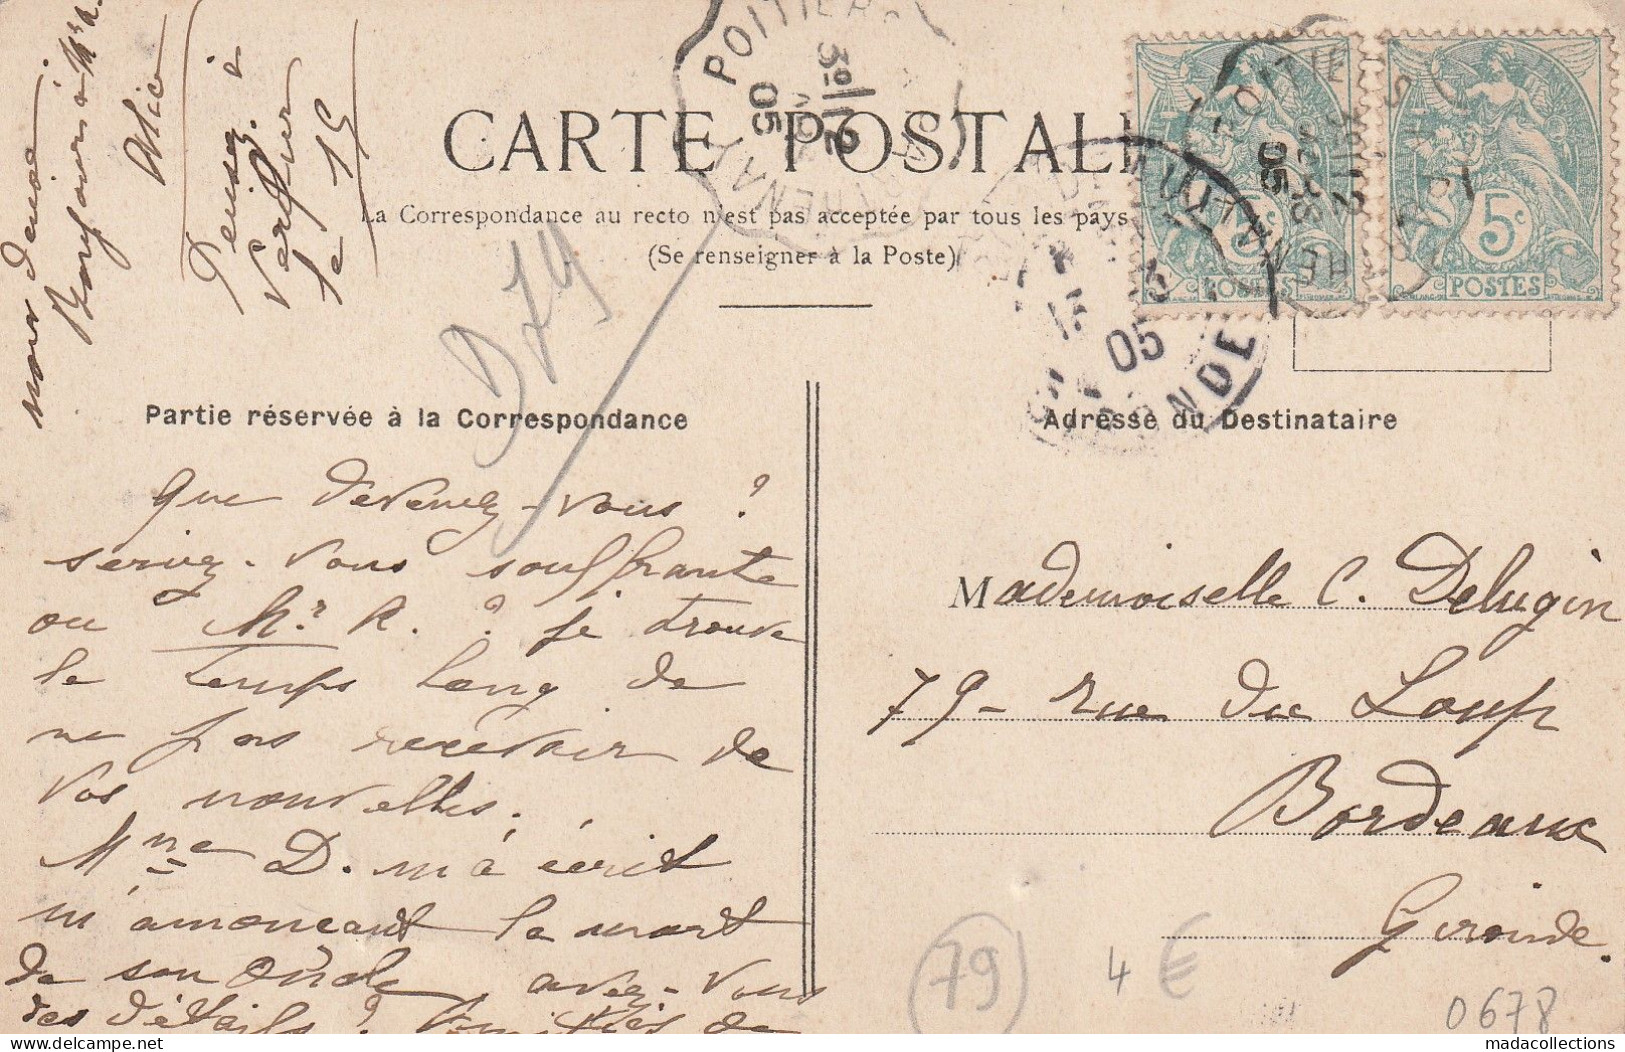 CARTE POSTALE
La Correspondance au recto n'est pas acceptée par tous les pays
(Se renseigner à la Poste)
Partie réservée à la Correspondance
Adresse du Destinataire
POITIERS
3e/12
05
POSTES
5c
POSTES
05
D79
Bonjours à Mr R.
Alice
Pensez à
le 15
que devenez-vous ?
seriez-vous souffrante
ou Mr R. ? je trouve
le temps long de
ne pas recevoir de
vos nouvelles.
Mme D. m'a écrit
m'anonceant la mort
de son oncle, avez-vous
des détails ?
Mademoiselle C. Delugin
79 - rue du Loup
Bordeaux
Gironde.
79
4 €
0678
madacollections
delcampe.net